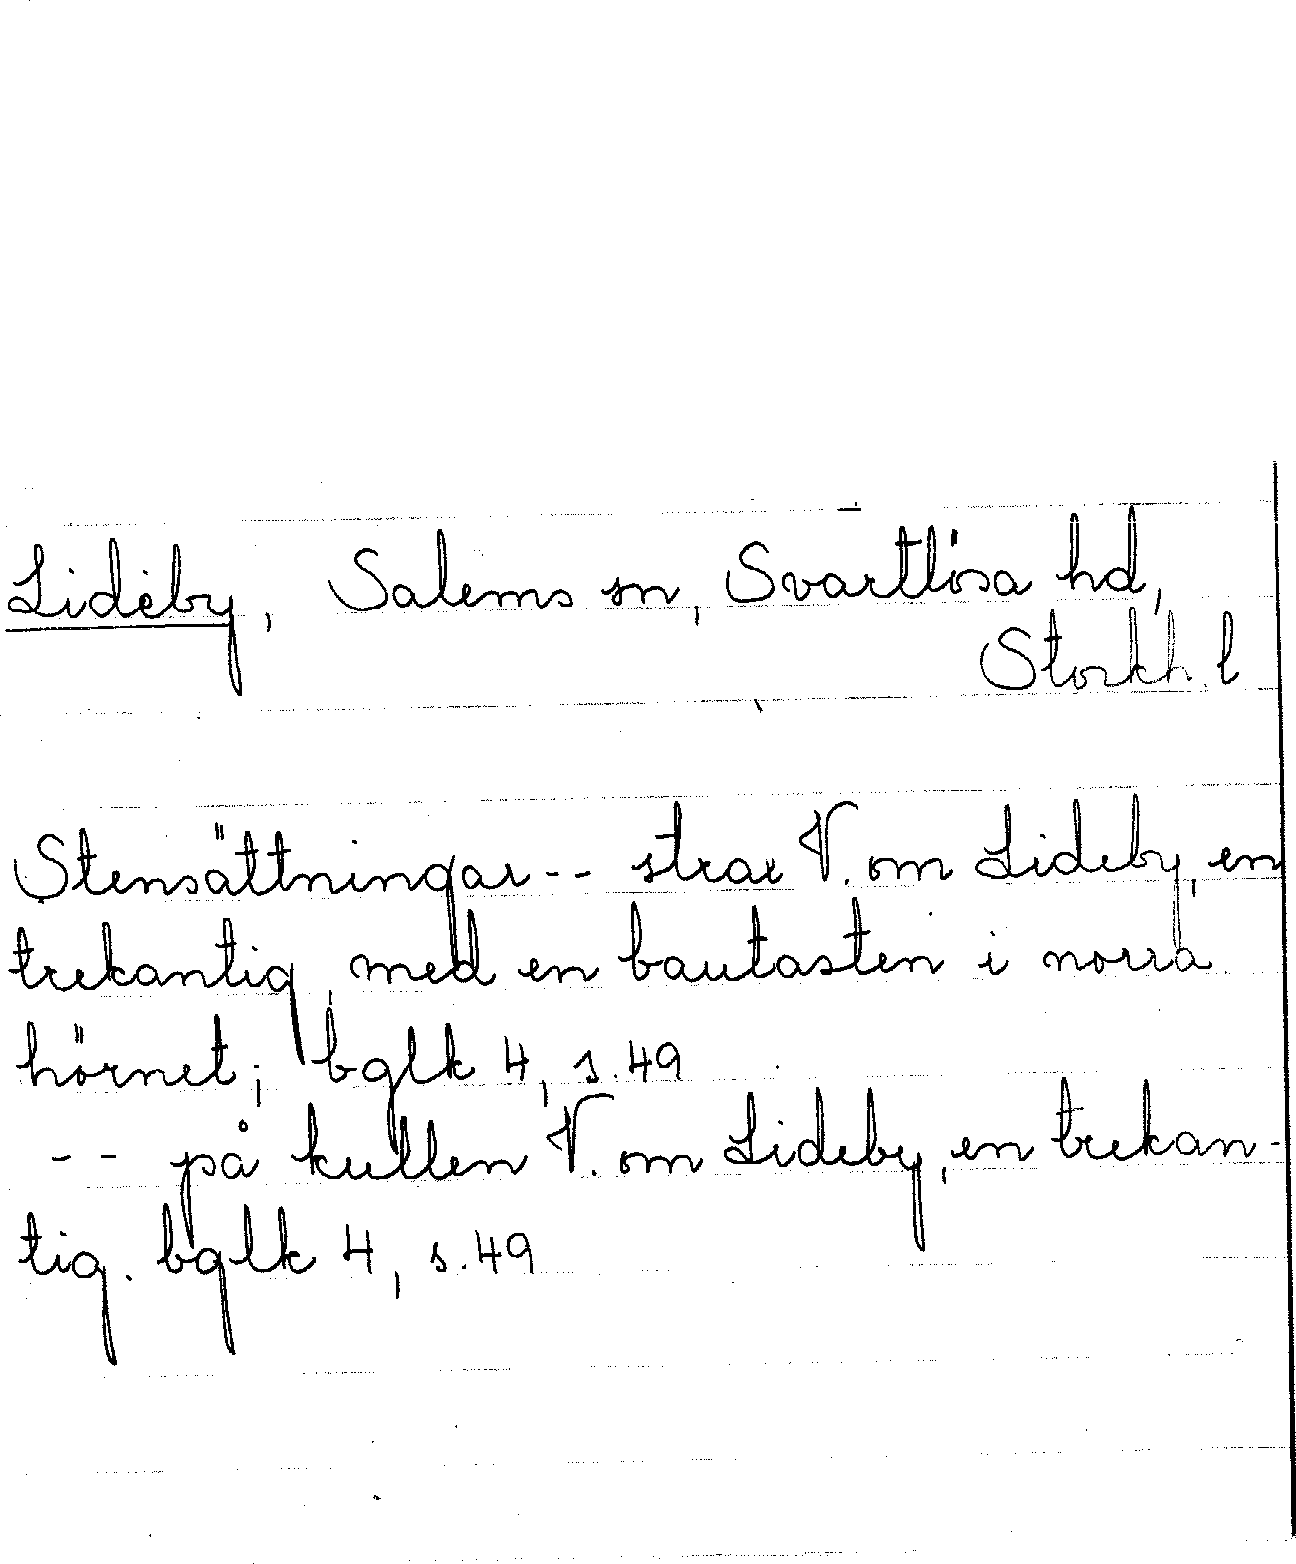 Lideby, Salems sn, Svartlösa hd,
Stockh. l
Stensättningar -- strax V. om Lideby, en
trekantig, med en bautasten i norra
hörnet; bglk 4, s. 49
-- på kullen V. om Lideby, en trekan-
tig. bglk 4, s. 49